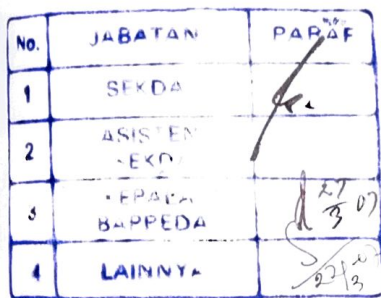 No. JABATAN PARAF
1 SEKDA
2 ASISTEN
SEKDA
3 KEPALA
BAPPEDA 27/3 07
4 LAINNYA 27/3